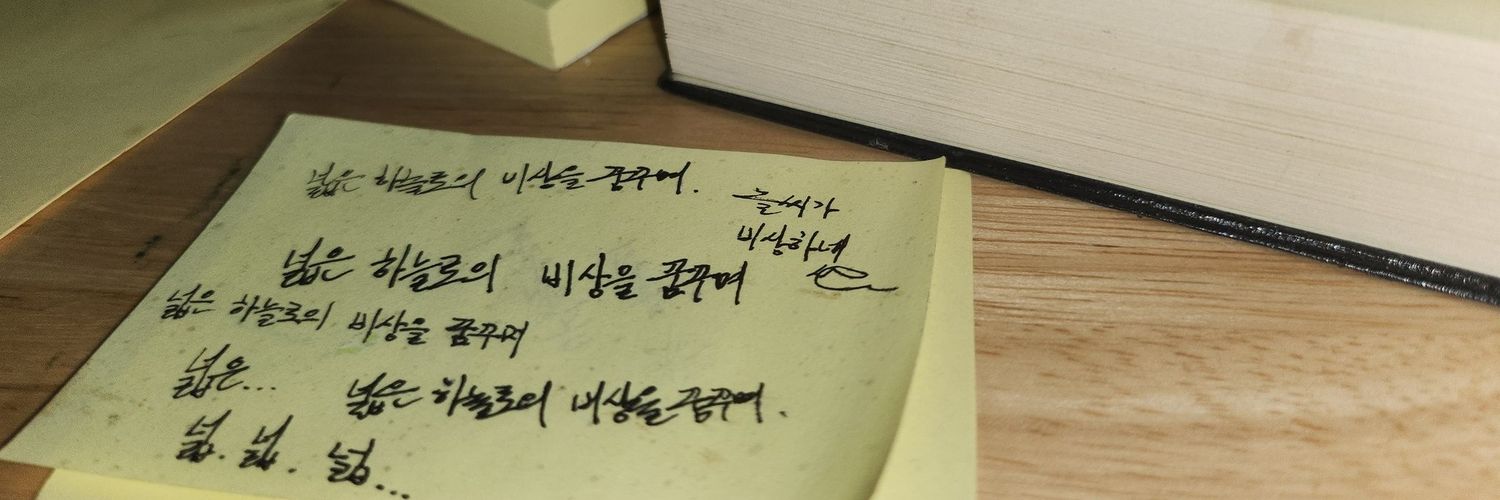 넓은 하늘로의 비상을 꿈꾸며.
글씨가
비상하네
넓은 하늘로의 비상을 꿈꾸며
넓은 하늘로의 비상을 꿈꾸며
넓은... 넓은 하늘로의 비상을 꿈꾸며.
넓. 넓. 넓...